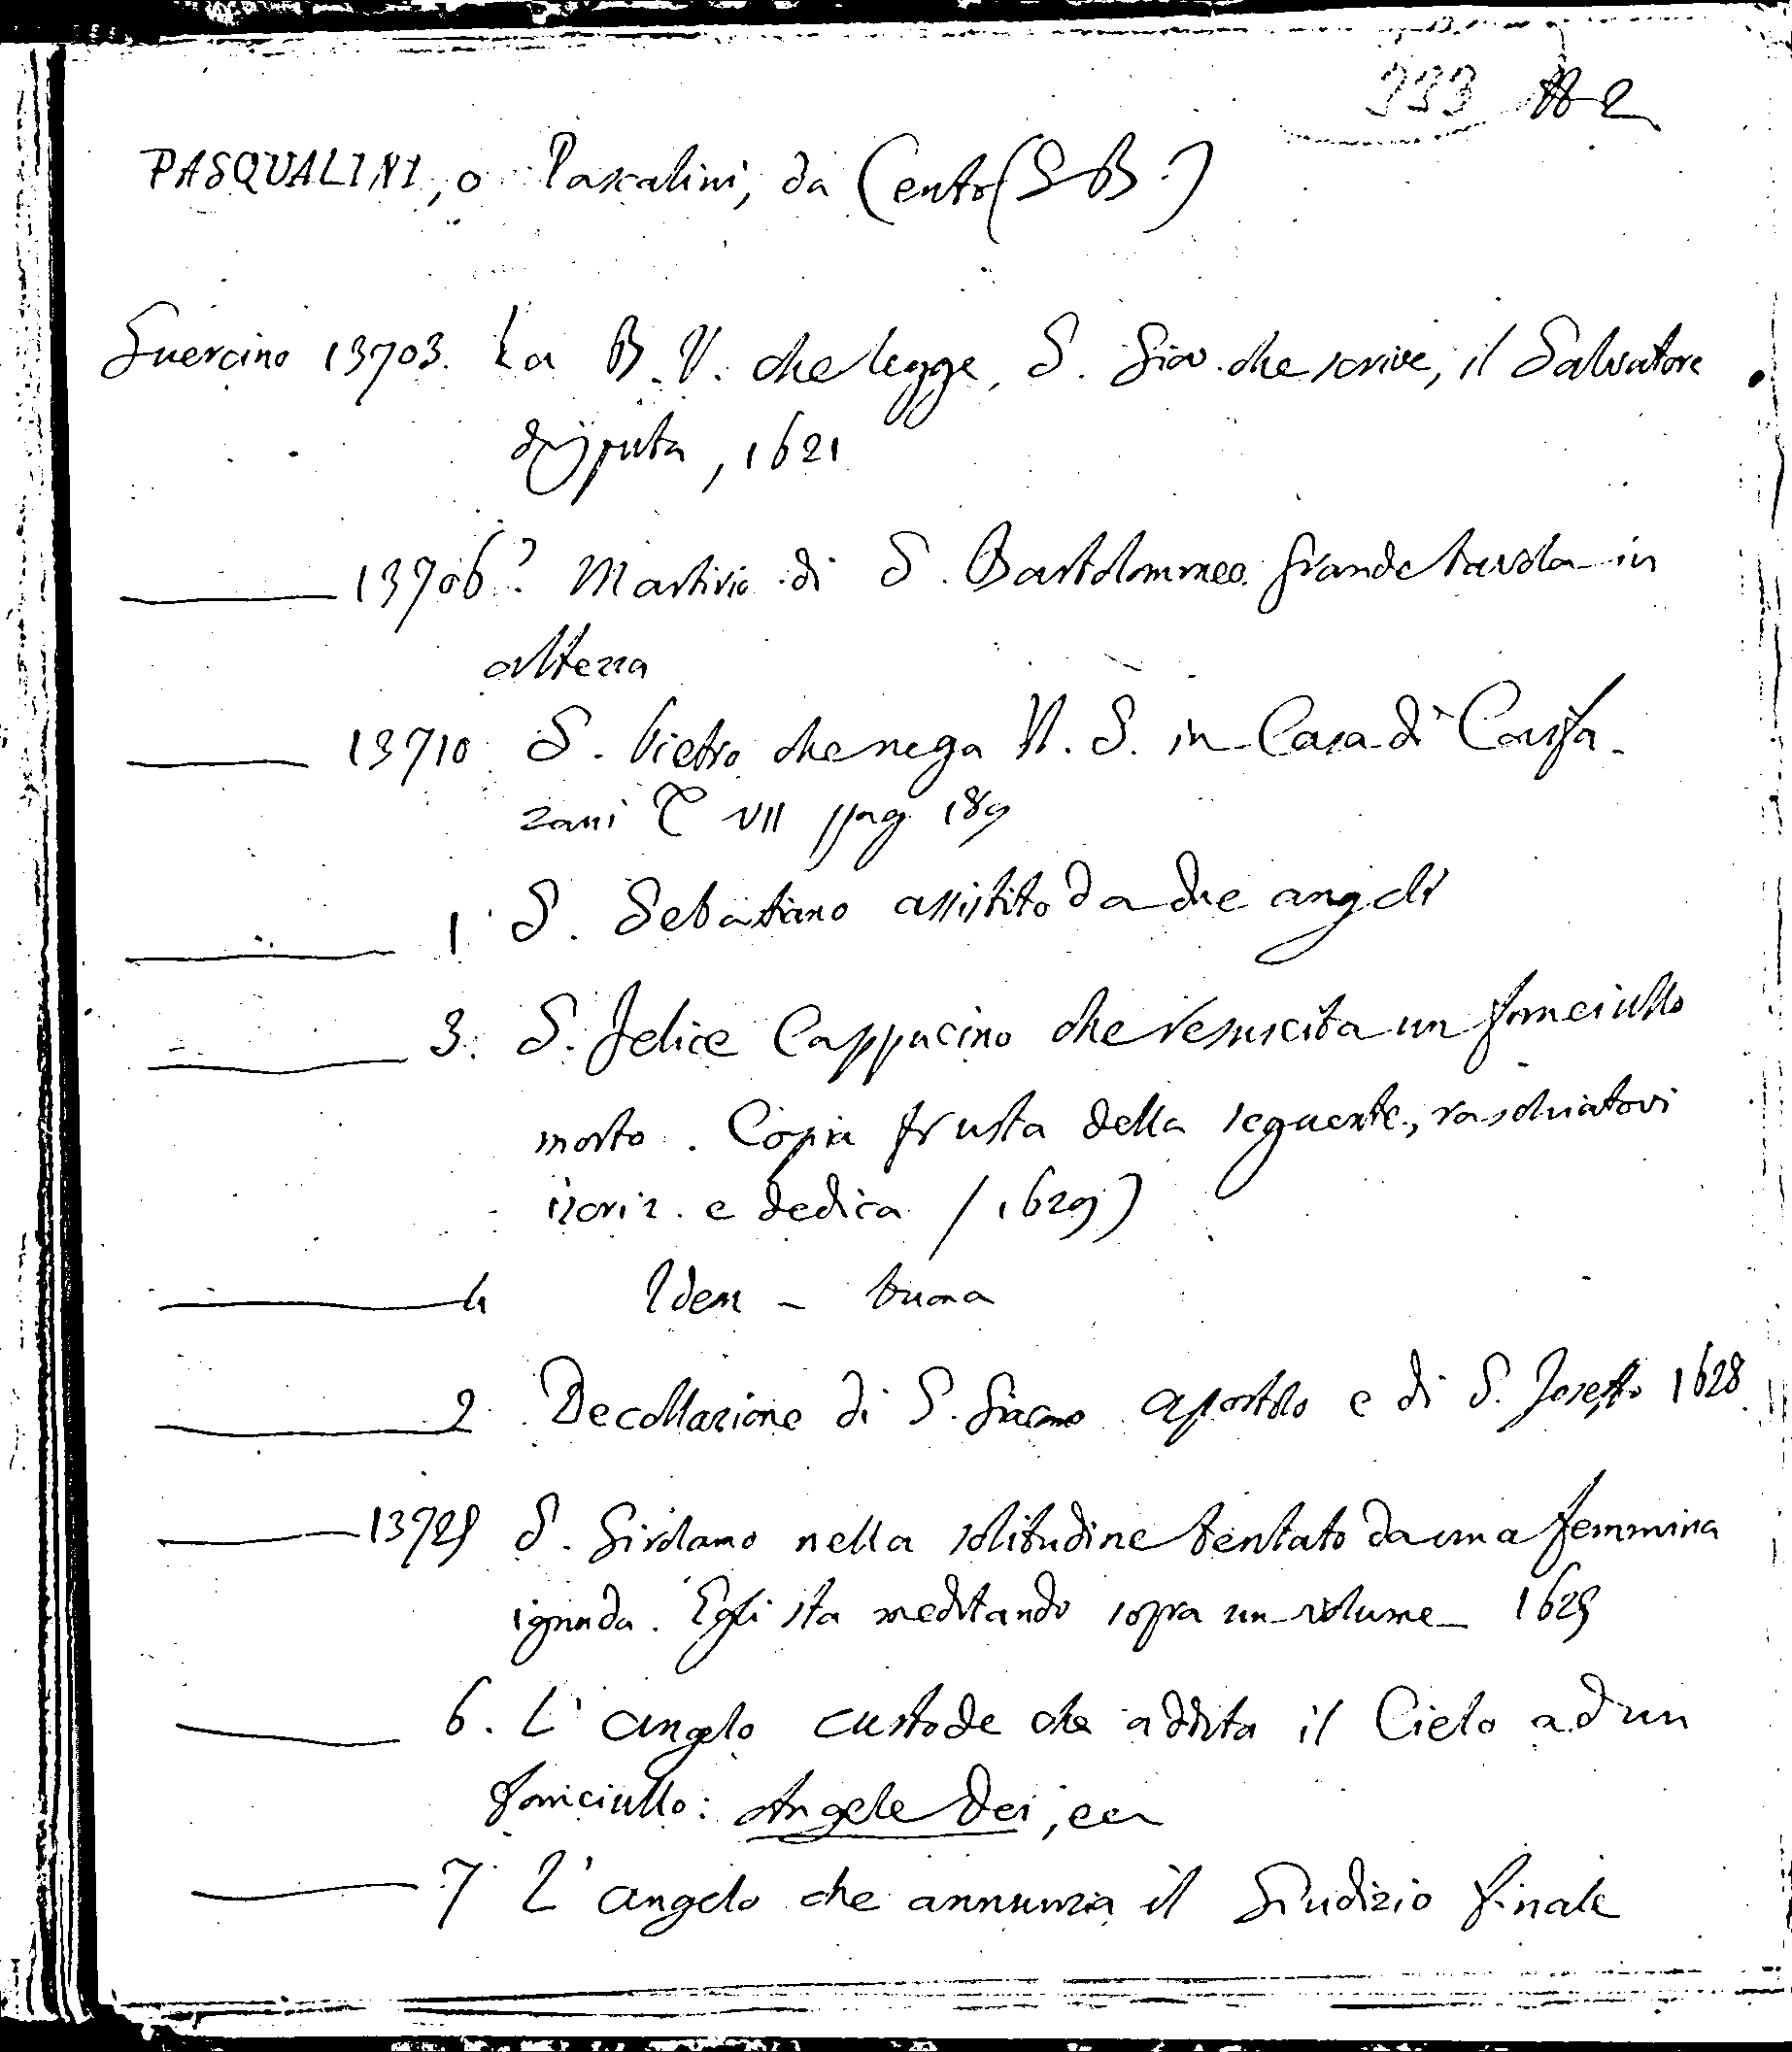 333 2
PASQUALINI, o Pascalini, da Cento (G B.)
Guercino 13703. La B. V. che legge, S. Giov. che scrive, il Salvatore
disputa, 1621
13706? Martirio di S. Bartolommeo. Grande tavola in
altezza
13710 S. Pietro che nega N. S. in Casa di Caifa.
Zani T VII pag 189
1 S. Sebastiano assistito da due angeli
3. S. Felice Cappucino che resuscita un fanciullo
morto. Copia frusta della seguente, raschiatovi
iscriz. e dedica (1629)
4 Idem - buona
2 Decollazione di S. Giacomo apostolo e di S. Joseffo 1628
13725 S. Girolamo nella solitudine tentato da una femmina
ignuda. Egli sta meditando sopra un volume 1625
6. L'angelo custode che addita il Cielo ad un
fanciullo: Angele Dei, ecc
7 L'angelo che annunzia il Giudizio finale